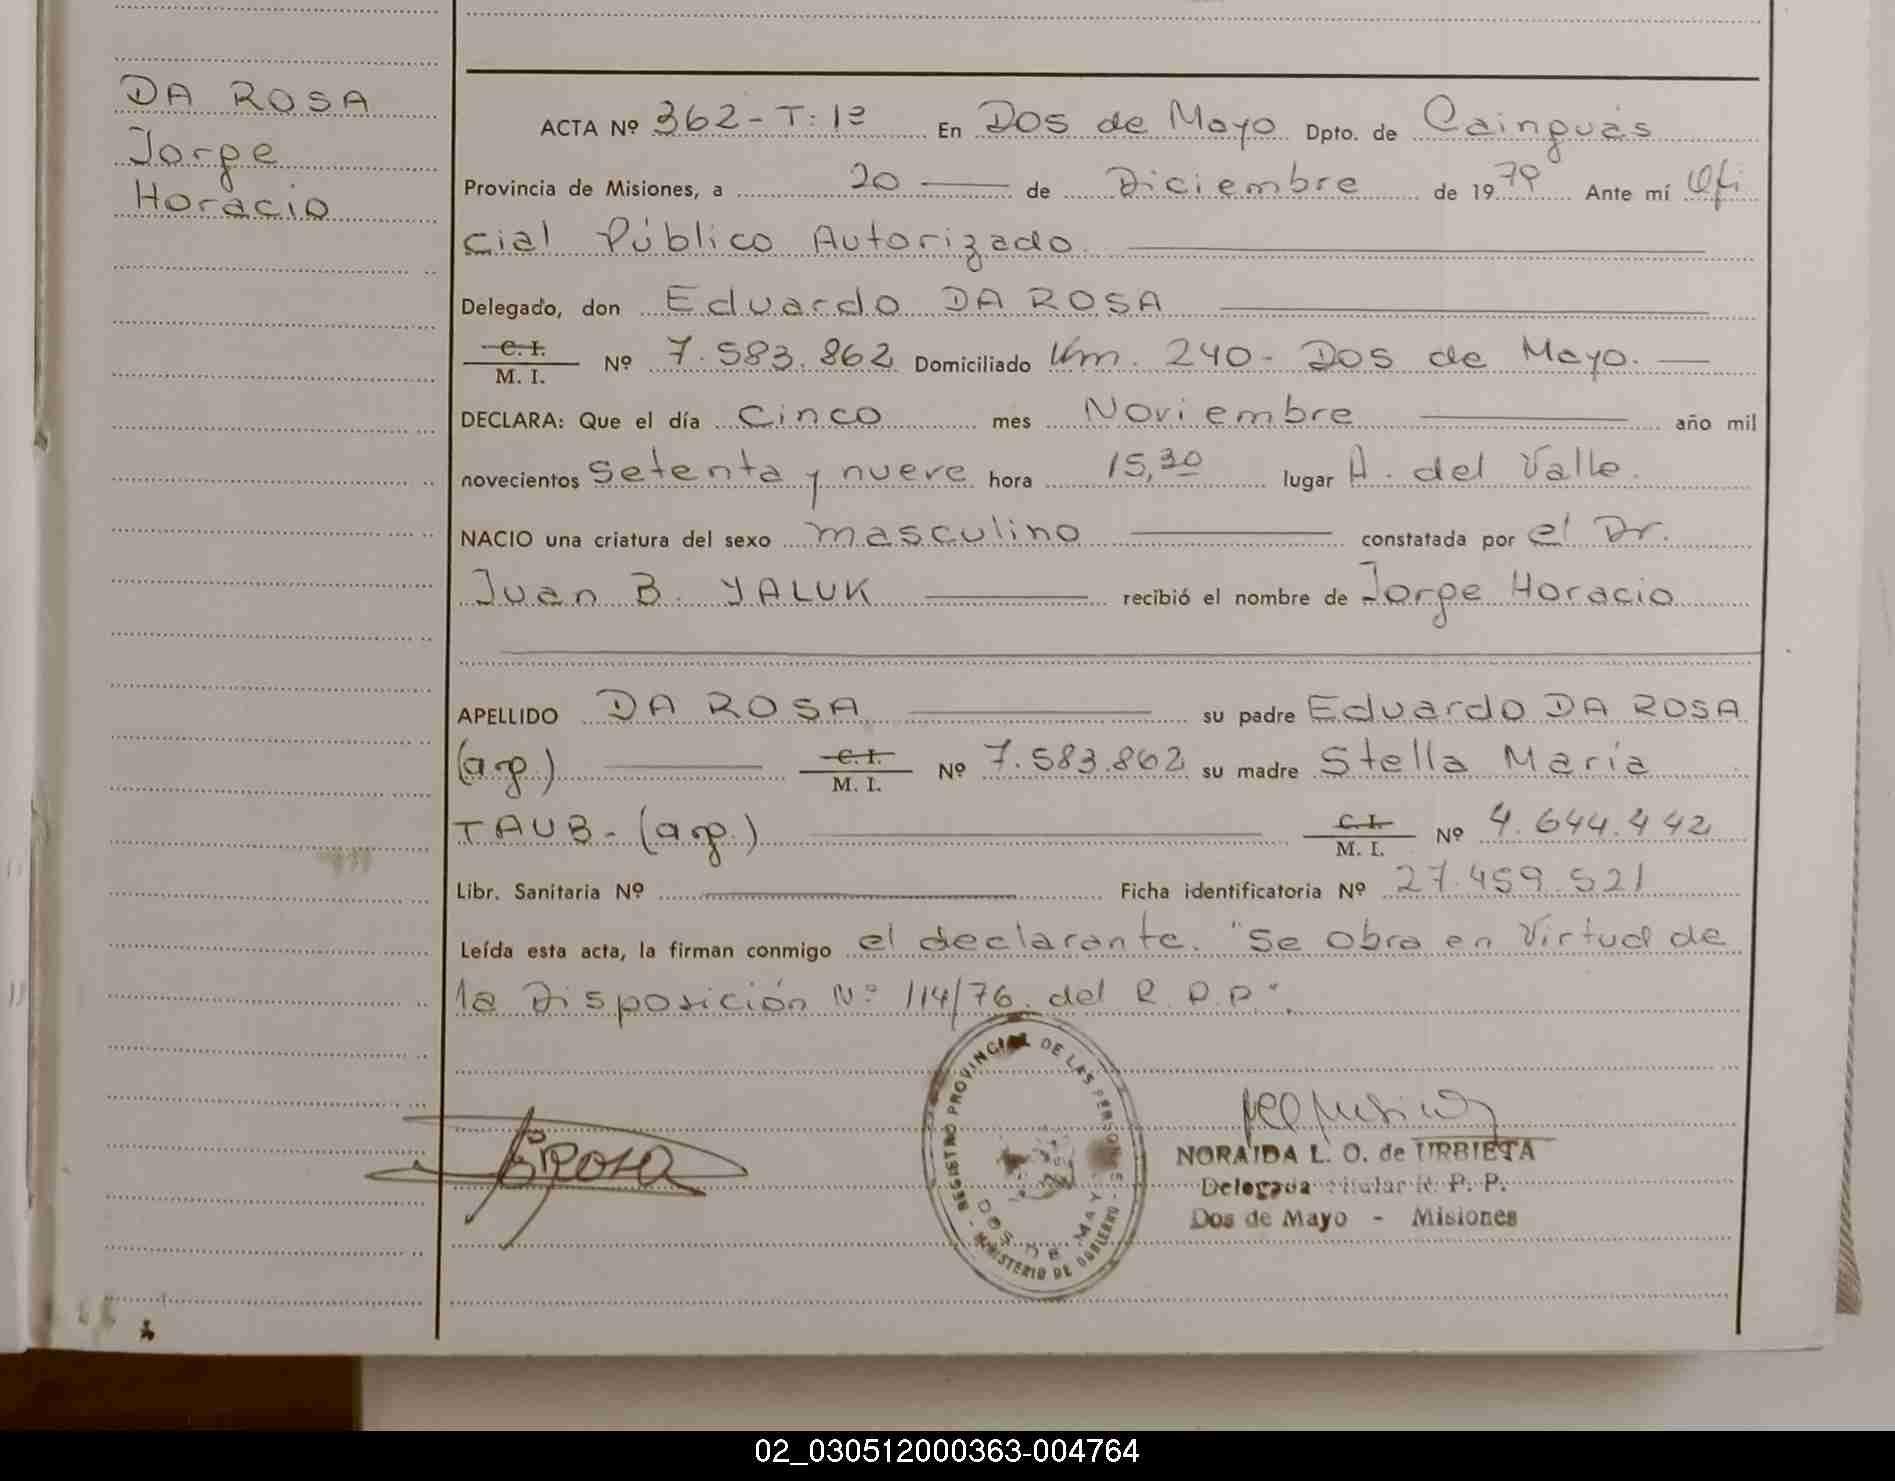 DA ROSA
Jorge
Horacio
ACTA Nº 362-T:1º En Dos de Mayo Dpto. de Cainguás
Provincia de Misiones, a 20 de Diciembre de 1979 Ante mí Ofi
cial Público Autorizado
Delegado, don Eduardo DA ROSA
C. I.
M. I. Nº 7.583.862 Domiciliado Km. 240- Dos de Mayo.
DECLARA: Que el día Cinco mes Noviembre año mil
novecientos setenta y nueve hora 15,30 lugar A. del Valle.
NACIO una criatura del sexo masculino constatada por el Dr.
Juan B. YALUK recibió el nombre de Jorge Horacio
APELLIDO DA ROSA su padre Eduardo DA ROSA
(arg.) C. I. M. I. Nº 7.583.862 su madre Stella Maria
TAUB-(arg.) C. I. M. I. Nº 4.644.442
Libr. Sanitaria Nº Ficha identificatoria Nº 27.459.521
Leída esta acta, la firman conmigo el declarante. "Se obra en Virtud de
la Disposición Nº 114/76. del R.P.P".
REGISTRO PROVINCIAL DE LAS PERSONAS - MINISTERIO DE GOBIERNO -
DOS DE MAYO
NORAIDA L. O. de URBIETA
Delegada Titular R. P. P.
Dos de Mayo - Misiones
02_030512000363-004764